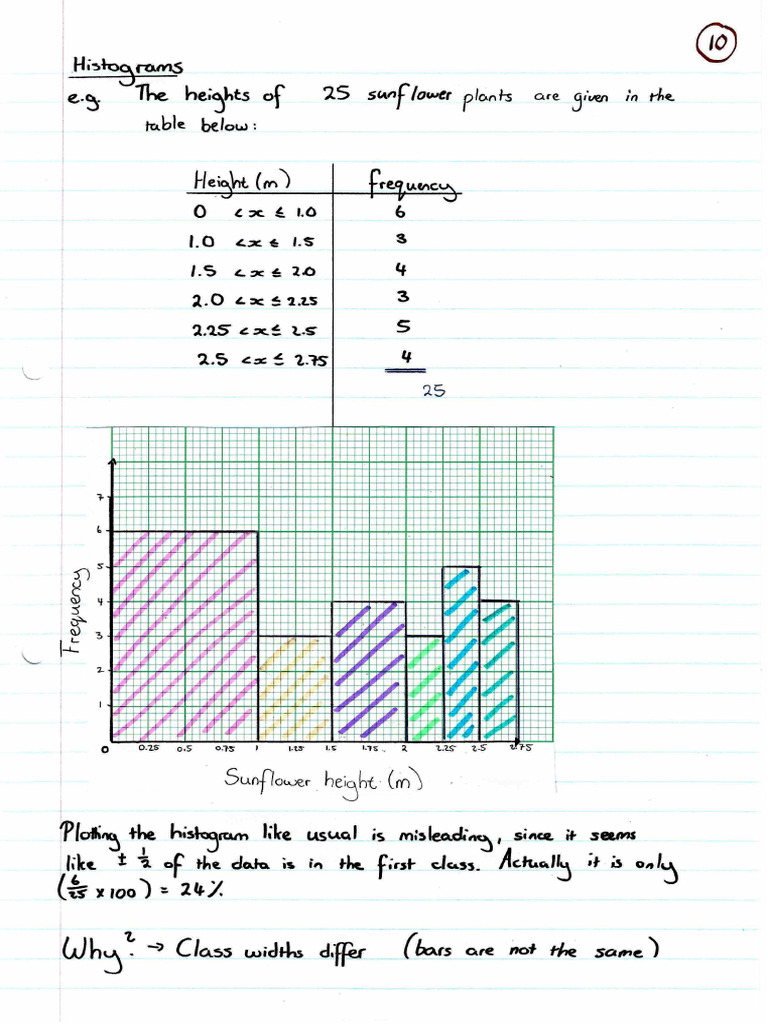 10
Histograms
e.g. The heights of 25 sunflower plants are given in the
table below:
Height (m) frequency
0 < x ≤ 1.0 6
1.0 < x ≤ 1.5 3
1.5 < x ≤ 2.0 4
2.0 < x ≤ 2.25 3
2.25 < x ≤ 2.5 5
2.5 < x ≤ 2.75 4
25
7
6
5
4
3
2
1
Frequency
0 0.25 0.5 0.75 1 1.25 1.5 1.75 2 2.25 2.5 2.75
Sunflower height (m)
Plotting the histogram like usual is misleading, since it seems
like ± 1/2 of the data is in the first class. Actually it is only
(6/25 x 100) = 24%
Why? → Class widths differ (bars are not the same)